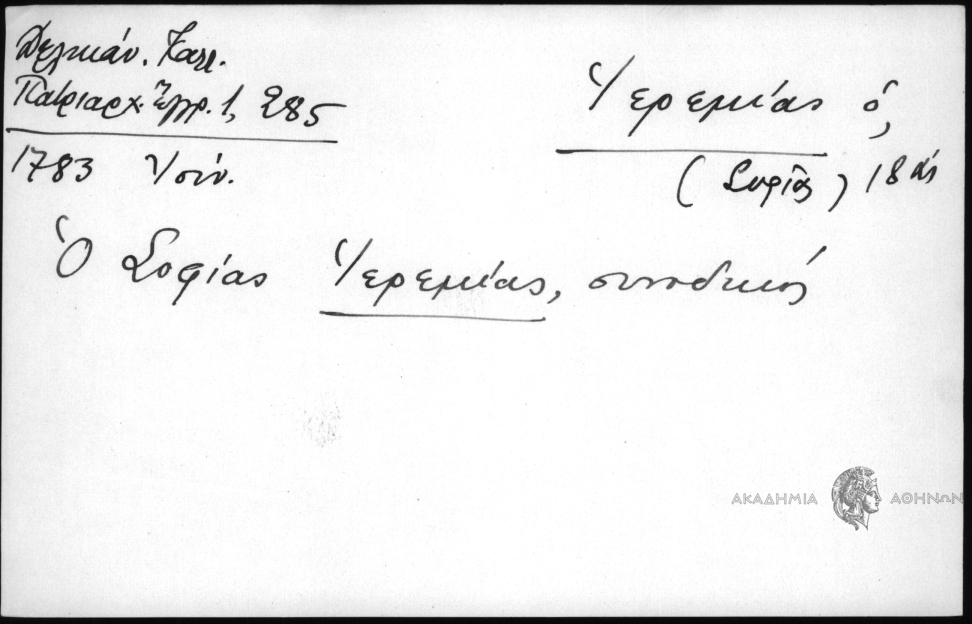 Δελικάν. Καλλ.
Πατριαρχ. Ἔγγρ. 1, 285
1783 Ἰούν.
Ἱερεμίας ὁ,
(Σοφίας) 18 αἰ
Ὁ Σοφίας Ἱερεμίας, συνοδικός
ΑΚΑΔΗΜΙΑ ΑΘΗΝΩΝ